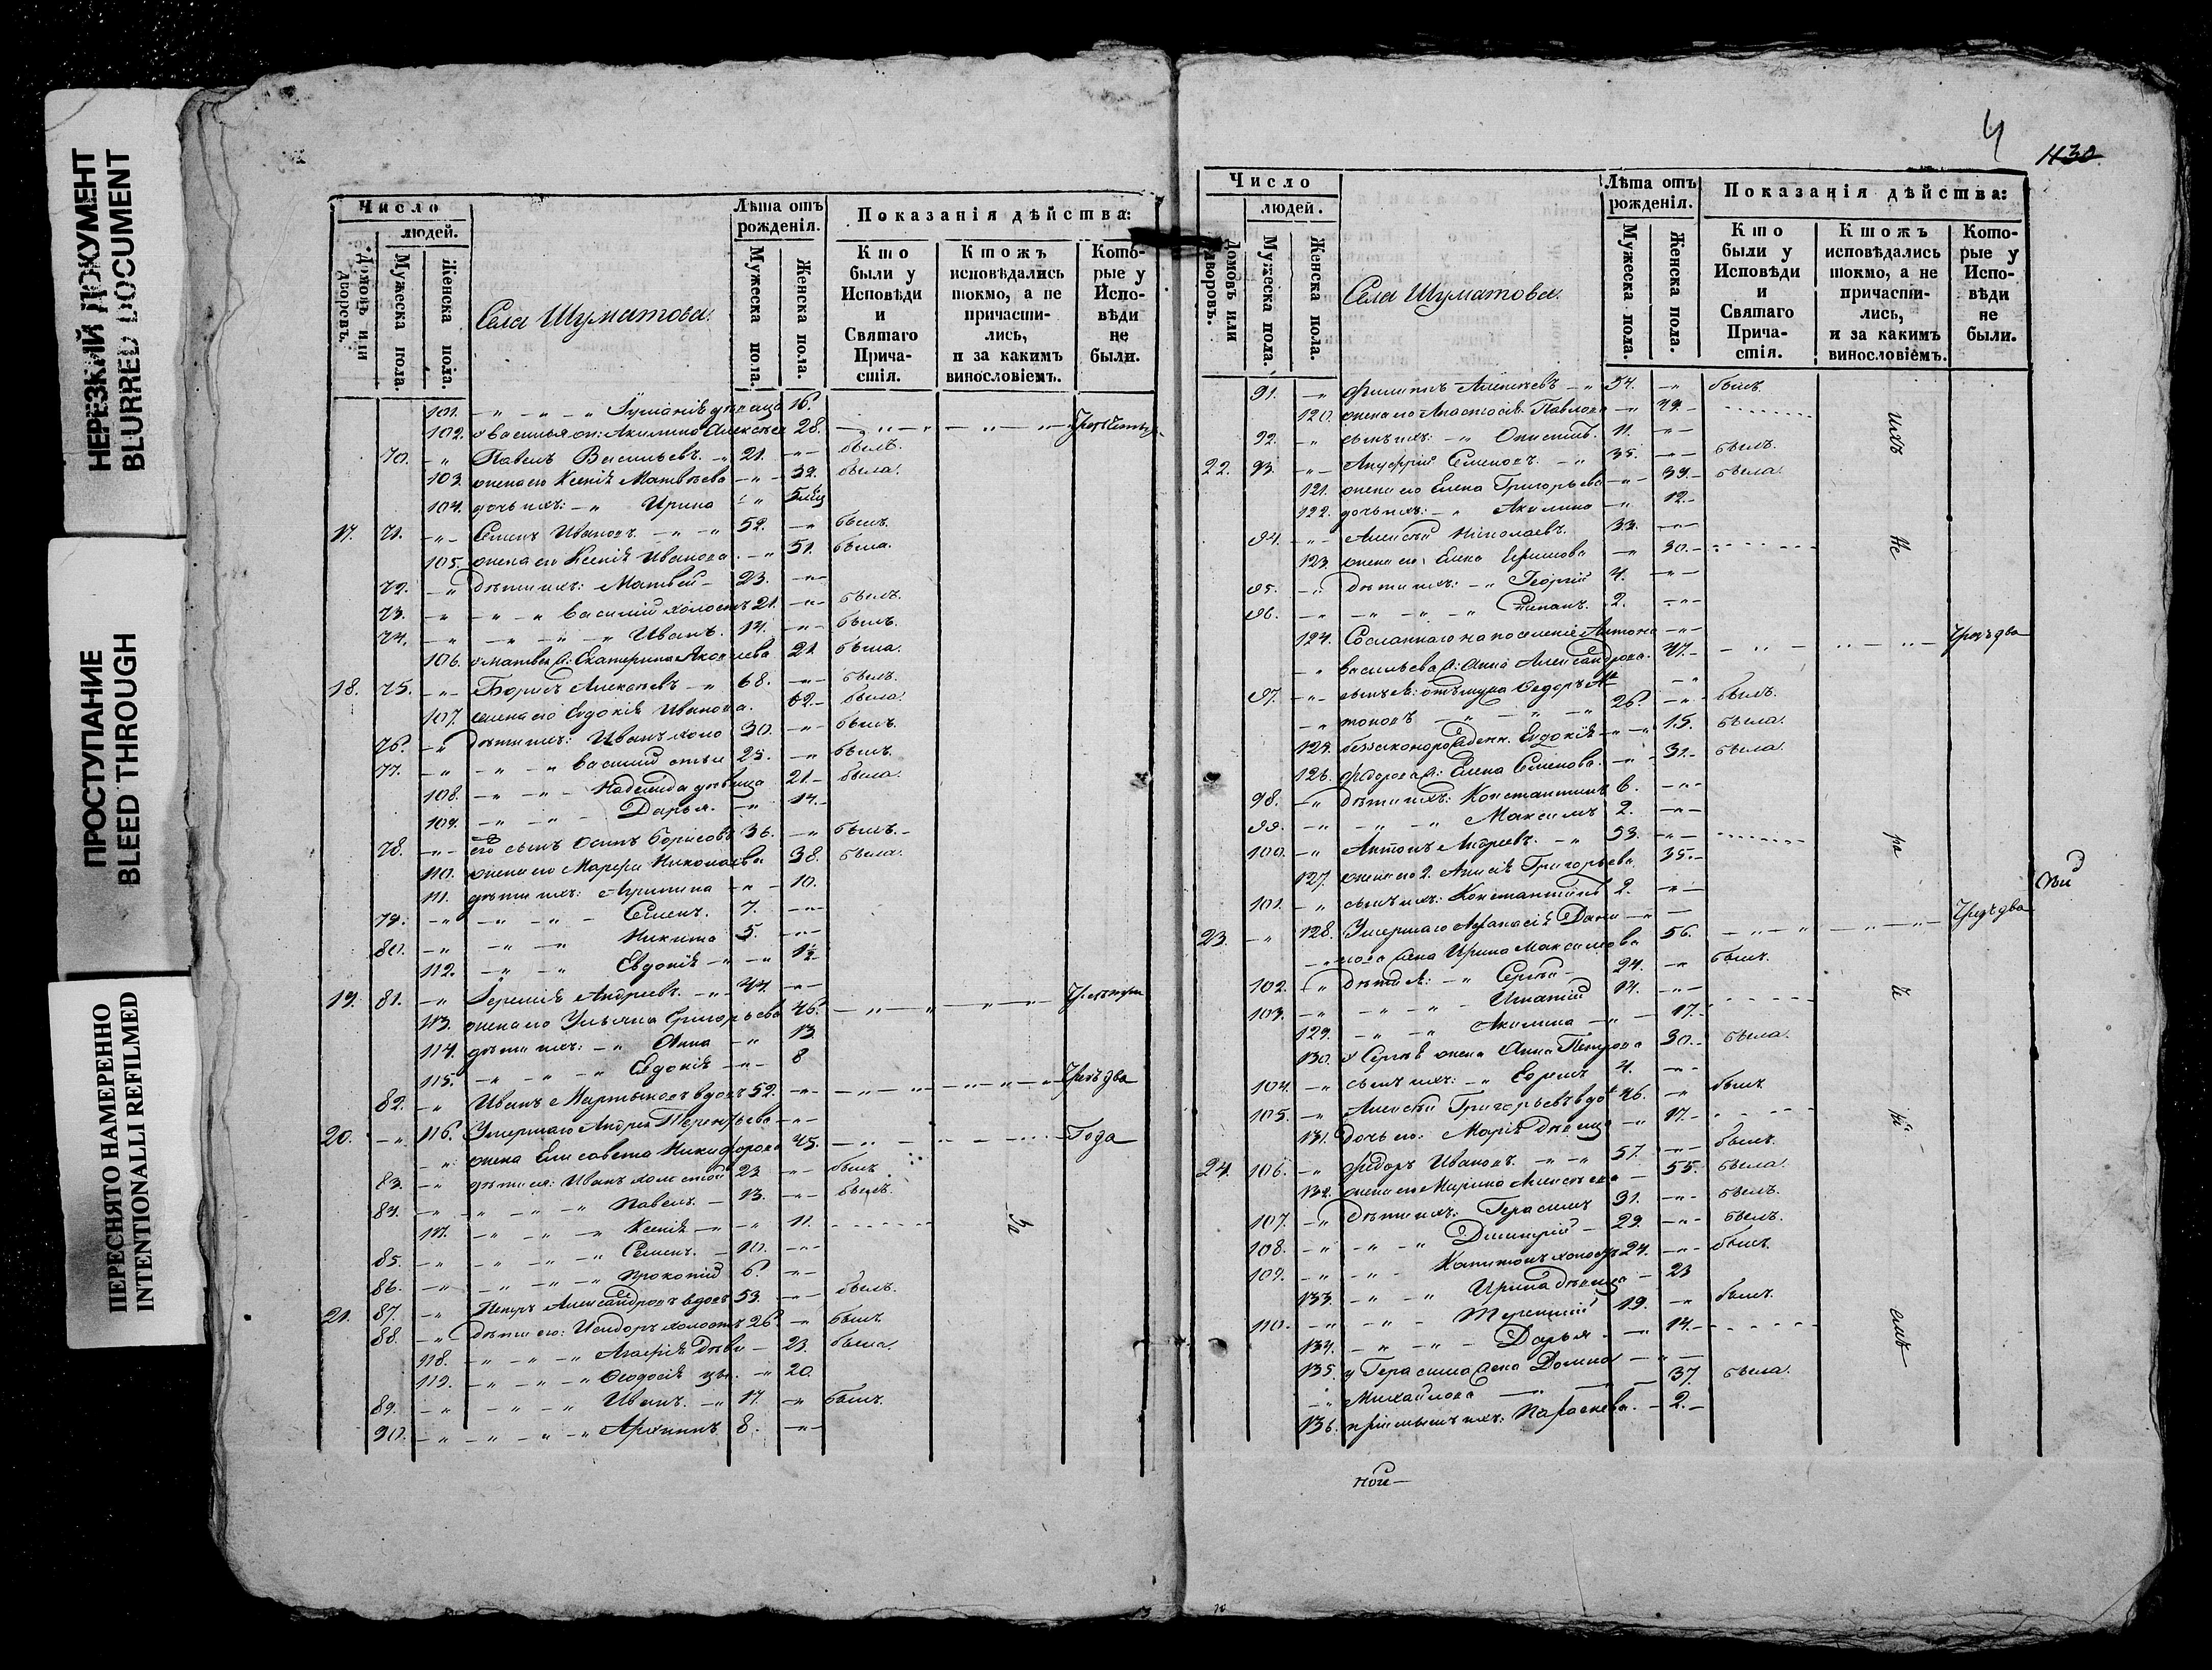 НЕРЕЗКИЙ ДОКУМЕНТ
BLURRED DOCUMENT
ПРОСТУПАНИЕ
BLEED THROUGH
ПЕРЕСНЯТО НАМЕРЕННО
INTENTIONALLI REFILMED
Число
людей.
Домовъ или дворовъ.
Мужеска пола.
Женска пола.
Села Шуматова.
Лѣта отъ рожденія.
Мужеска пола.
Женска пола.
Показанія дѣйства:
Кто были у Исповѣди и Святаго Причастія.
Ктожъ исповѣдались токмо, а не причастились, и за какимъ винословіемъ.
Которые у Исповѣди не были.
101. девица 16.
102. Василья Акилина Алексѣева 28.
70. Павелъ Васильевъ. 21. былъ.
103. жена его Ксенія Матвѣева 32. была.
104. дочь ихъ: Ирина
17. 71. Семенъ Ивановъ 52. былъ.
105. жена его Ксенія Иванова 51. была.
72. дѣти ихъ: Матвей 23.
73. Василий холостъ 21. былъ.
74. Иванъ. 14. былъ.
106. Екатерина Яковлева 21. была.
18. 75. Борисъ Алексѣевъ 68. былъ.
107. жена его Евдокія Иванова. 62. была.
76. дѣти ихъ: Иванъ холо 30. былъ.
77. Василий 25. былъ.
108. Надежда дѣвица 21. была.
109. Дарья. 14.
78. его сынъ Осипъ Борисовъ 36. былъ.
110. жена его Марфа Николаева 38. была.
111. дѣти ихъ: 10.
79. Семенъ. 7.
80. Никита 5.
112. Евдокія
19. 81. Андреевъ. 44.
113. жена его Ульяна Григорьева 46.
114. дѣти ихъ: Анна 13.
115. Евдокія 8
82. Иванъ Мартыновъ вдовъ 52. Чрезъ два
20. 116. Умершаго Андрея
жена Елисавета Никифорова 45. Года
83. Иванъ холостой 23. былъ.
84. Павелъ. 13. былъ.
117. Ксенія 11.
85. Семенъ. 10.
86. Прокопій 6.
21. 87. Петръ Александровъ вдовъ 53. былъ.
88. дѣти его: Исидоръ холостъ 26. былъ.
118. Агафія Дѣви 23. была.
119. Феодосія 20.
89. Иванъ. 17. былъ.
90. Архиппъ 8.
За
4
1130.
Число
людей.
Домовъ или дворовъ.
Мужеска пола.
Женска пола.
Села Шуматова.
Лѣта отъ рожденія.
Мужеска пола.
Женска пола.
Показанія дѣйства:
Кто были у Исповѣди и Святаго Причастія.
Ктожъ исповѣдались токмо, а не причастились, и за какимъ винословіемъ.
Которые у Исповѣди не были.
91. Филиппъ Алексѣевъ 54. былъ.
120. жена его Анастасія Павлова 49.
92. сынъ ихъ: 11.
22. 93. Ануфрій Семеновъ. 35. былъ.
121. жена его Елена Григорьева 33. была.
122. дочь ихъ: Акилина 12.
94. Алексѣй Николаевъ. 33.
123. жена его Елена Ефимова 30.
95. дѣти ихъ: Георгій 4.
96. Степанъ. 2.
124. Сосланнаго на поселеніе Антона
Васильева Анна Александрова. 47. Чрезъ два
97. Федоръ Ан
тоновъ 26. былъ.
125. Евдокія 15. была.
126. Федорова Елена Семенова. 31. была.
98. дѣти ихъ: Константинъ 6.
99. Максимъ 2.
100. Антонъ Андреевъ. 53.
127. жена его 2. Анисія Григорьева 35.
101. сынъ ихъ: Константинъ 2.
23. 128. Умершаго Афанасія Дани
лова жена Ирина Максимова 56. Чрезъ два
102. Сергѣй 24. былъ.
103. Игнатій 14.
129. Акилина 17.
130. у Сергѣя жена Анна Петрова 30. была.
104. сынъ ихъ: Ефремъ 4.
105. Алексѣй Григорьевъ вдо 46. былъ
131. дочь его: Марія дѣвица 17.
24. 106. Федоръ Ивановъ. 57. былъ.
132. жена его Марина Алексѣева 55. была.
107. дѣти ихъ: Герасимъ 31. былъ.
108. Димитрій 29. былъ.
109. Капитонъ холостъ 24. былъ.
133. Ирина дѣвица 23
110. Терентій 19. былъ.
134. Дарья 14.
135. у Герасима жена Домна
Михайлова 37. была.
136. Параскева. 2.
ной
ихъ
Не
ра
че
ні
амъ